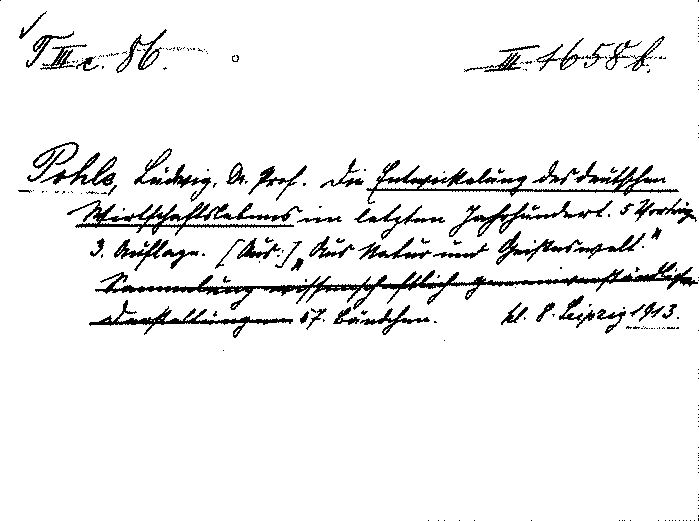 T III c. 86. III. 1658 b.
Pohle, Ludwig, Dr. Prof. Die Entwickelung des deutschen
Wirtschaftslebens im letzten Jahrhundert. 5 Vorträge
3. Auflage. [Aus:] „Aus Natur und Geisteswelt."
Sammlung wissenschaftlich gemeinverständlicher
Darstellungen 57. Bändchen. kl. 8. Leipzig 1913.